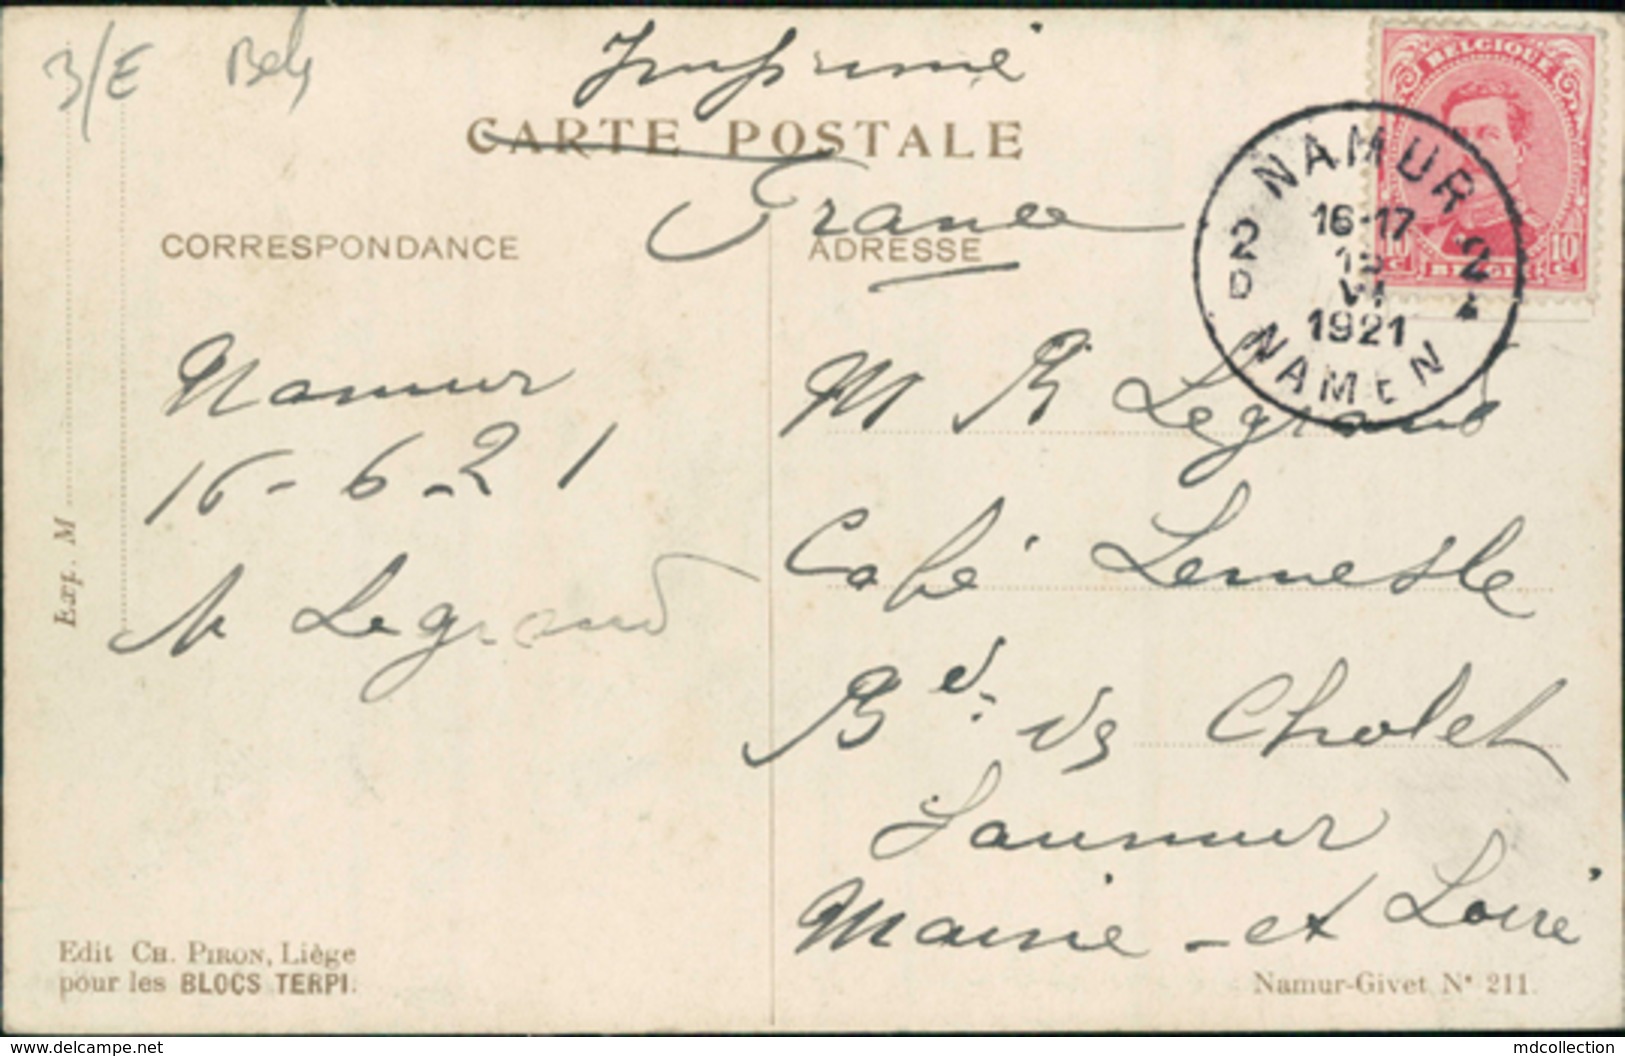 3/E Belg
Imprimé
CARTE POSTALE
France
CORRESPONDANCE
ADRESSE
BELGIQUE
10 c 10 c
BELGIË
NAMUR
16-17
2 2
D
1921
NAMEN
Namur
16-6-21
Legrand
Exp. M
M R Legrand
Café Lemesle
Bd. de Cholet
Saumur
Maine-et Loire
Edit CH. PIRON, Liège
pour les BLOCS TERPI.
Namur-Givet N° 211.
https://www.delcampe.net
mdcollection